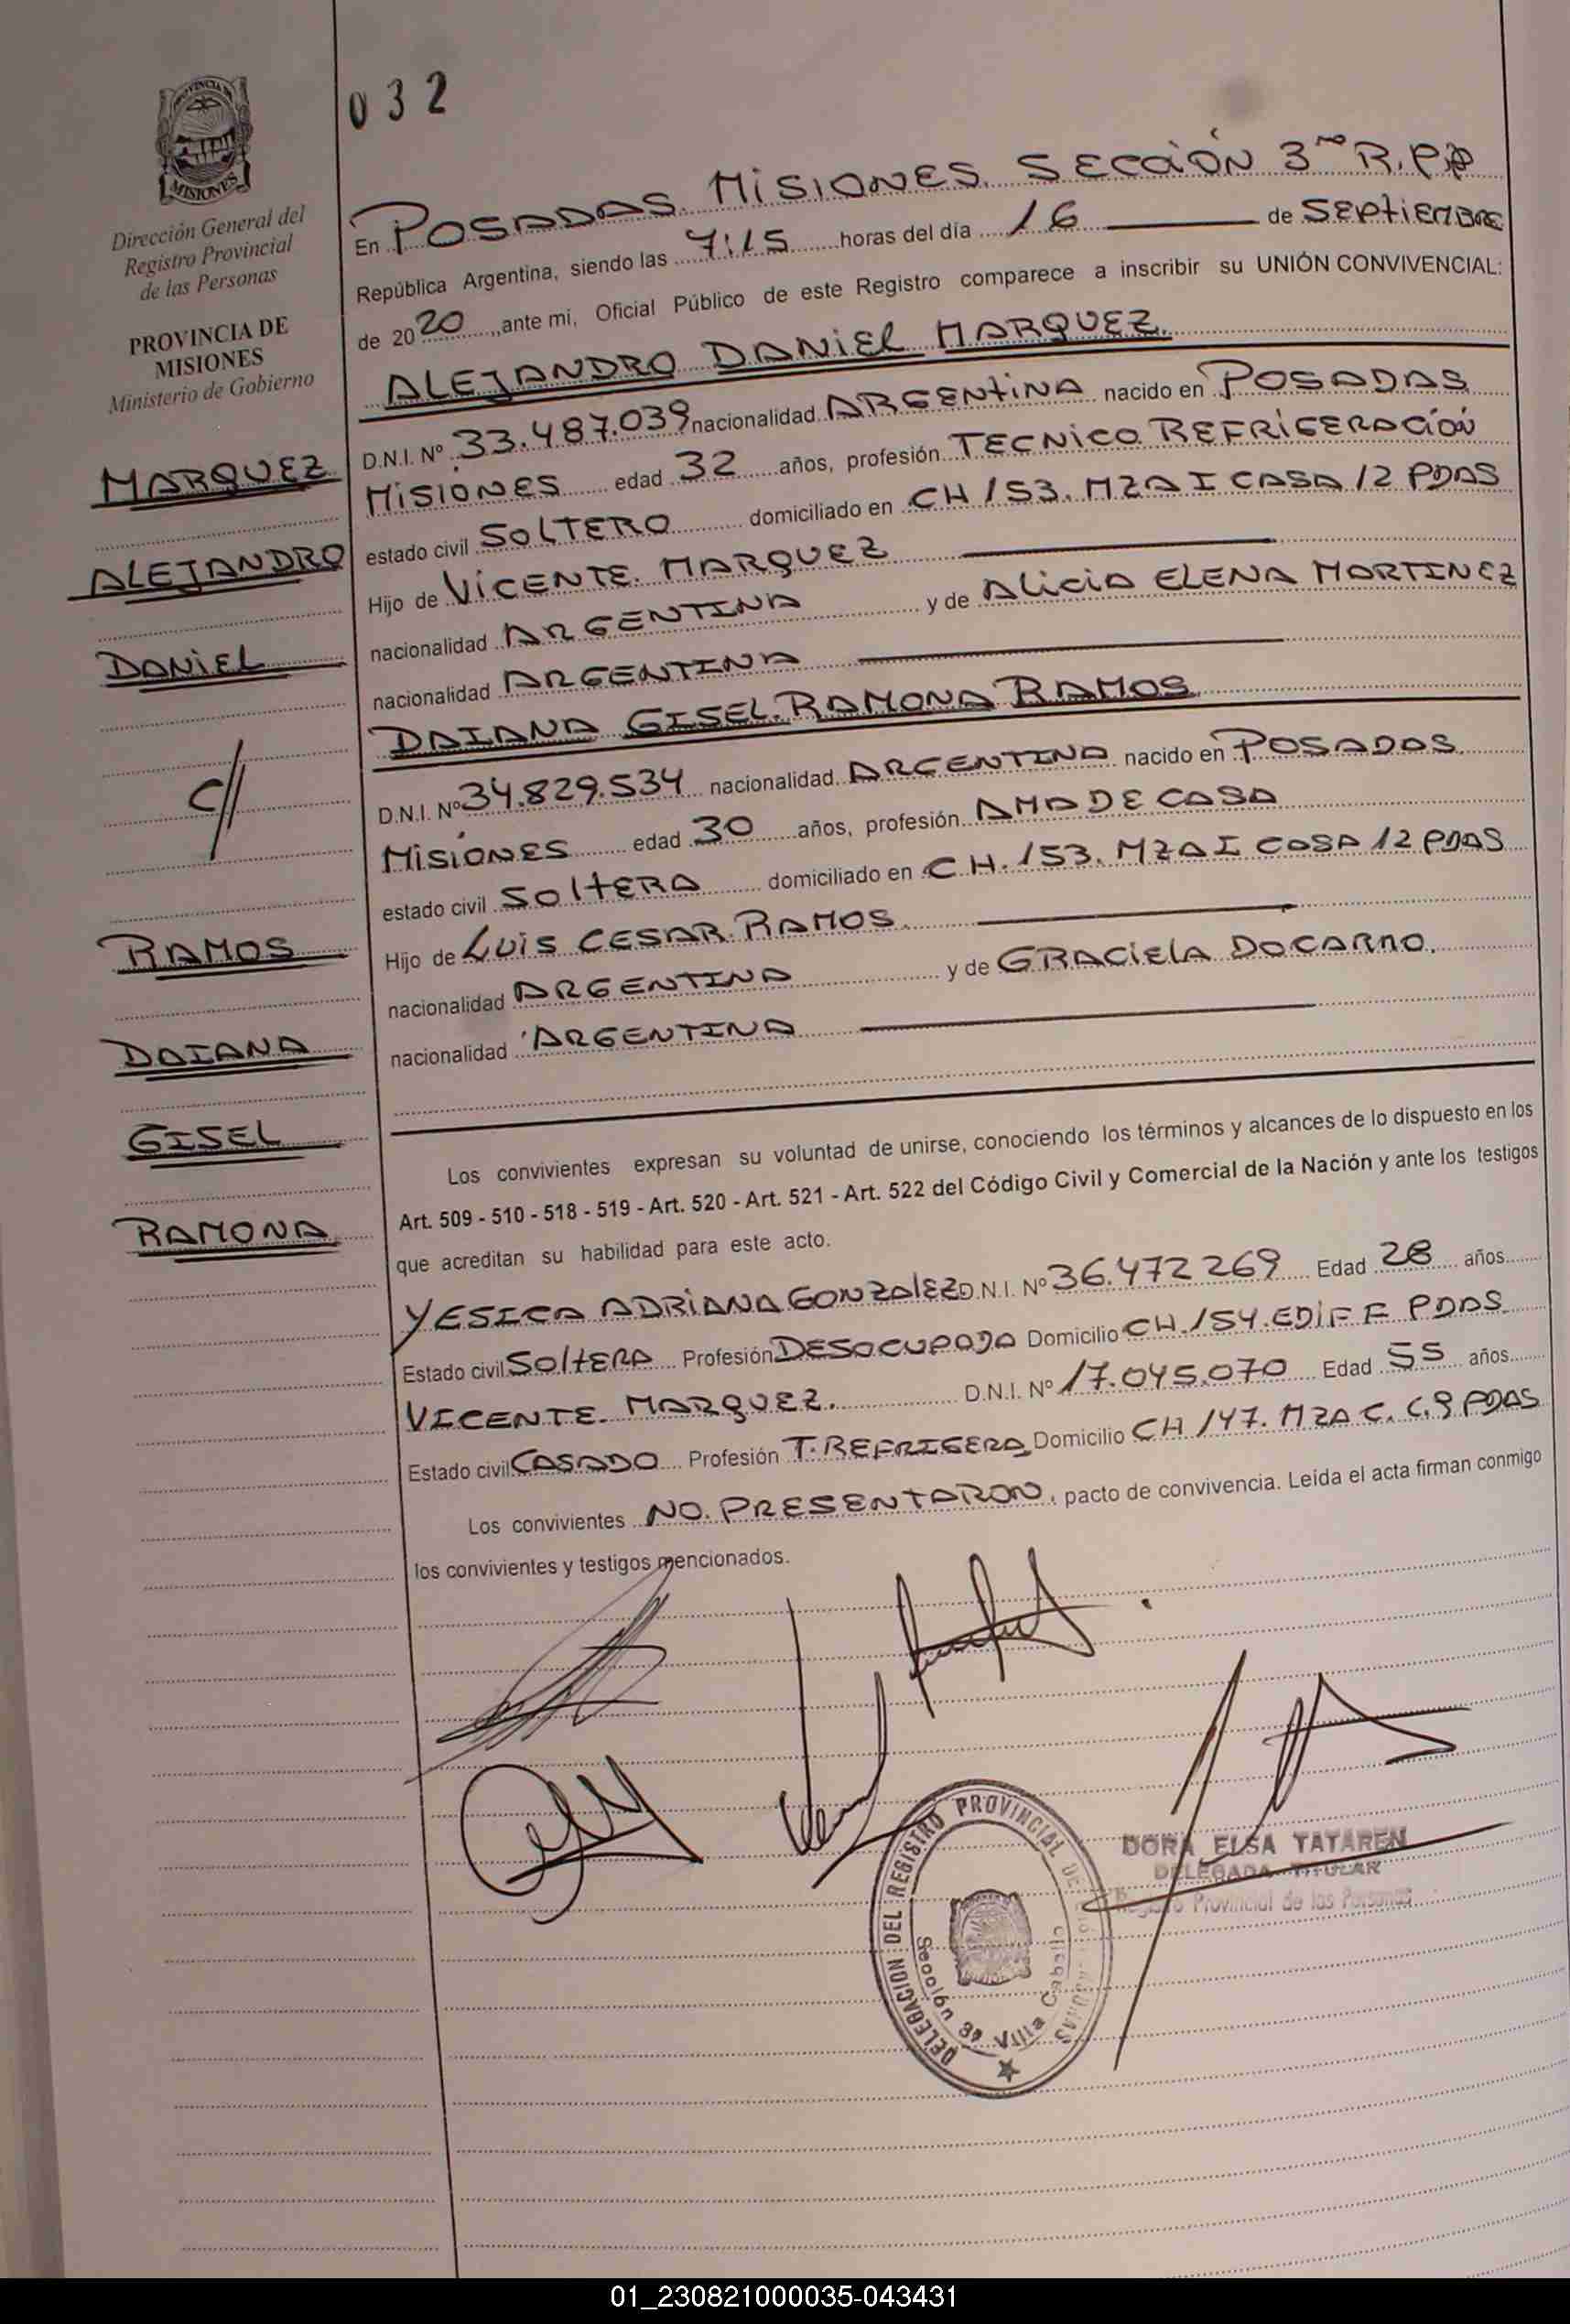 032
PROVINCIA DE
MISIONES
Dirección General del
Registro Provincial
de las Personas
PROVINCIA DE
MISIONES
Ministerio de Gobierno
MARQUEZ
ALEJANDRO
DANIEL
c//
RAMOS
DAIANA
GISEL
RAMONA
En POSADAS. MISIONES. SECCIÓN 3ra R.P.P
República Argentina, siendo las 7:15 horas del día 16 de SEPTIEMBRE
de 2020, ante mi, Oficial Público de este Registro comparece a inscribir su UNIÓN CONVIVENCIAL:
ALEJANDRO DANIEL MARQUEZ.
D.N.I. Nº 33.487.039 nacionalidad ARGENTINA nacido en POSADAS
MISIONES edad 32 años, profesión TECNICO REFRIGERACIÓN
estado civil SOLTERO domiciliado en CH 153. MZA I CASA 12 PDAS
Hijo de VICENTE. MARQUEZ
nacionalidad ARGENTINA y de ALICIA ELENA MARTINEZ
nacionalidad ARGENTINA
DAIANA GISEL. RAMONA RAMOS
D.N.I. Nº 34.829.534 nacionalidad ARGENTINA nacido en POSADAS
MISIONES edad 30 años, profesión AMA DE CASA
estado civil SOLTERA domiciliado en CH. 153. MZA I CASA 12 PDAS
Hijo de LUIS CESAR. RAMOS.
nacionalidad ARGENTINA y de GRACIELA DOCARMO.
nacionalidad ARGENTINA
Los convivientes expresan su voluntad de unirse, conociendo los términos y alcances de lo dispuesto en los
Art. 509 - 510 - 518 - 519 - Art. 520 - Art. 521 - Art. 522 del Código Civil y Comercial de la Nación y ante los testigos
que acreditan su habilidad para este acto.
YESICA ADRIANA GONZALEZ D.N.I. Nº 36.472269 Edad 28 años
Estado civil SOLTERA Profesión DESOCUPADA Domicilio CH. 154. EDIF F PDAS
VICENTE. MARQUEZ. D.N.I. Nº 17.045.070 Edad 55 años
Estado civil CASADO Profesión T. REFRIGERA Domicilio CH 147. MZA C. C.9 PDAS
Los convivientes NO. PRESENTARON, pacto de convivencia. Leída el acta firman conmigo
los convivientes y testigos mencionados.
DELEGACION DEL REGISTRO PROVINCIAL DE
Sección 3ª Villa Cabello
DORA ELSA TATAREN
DELEGADA TITULAR
Registro Provincial de las Personas
01_230821000035-043431